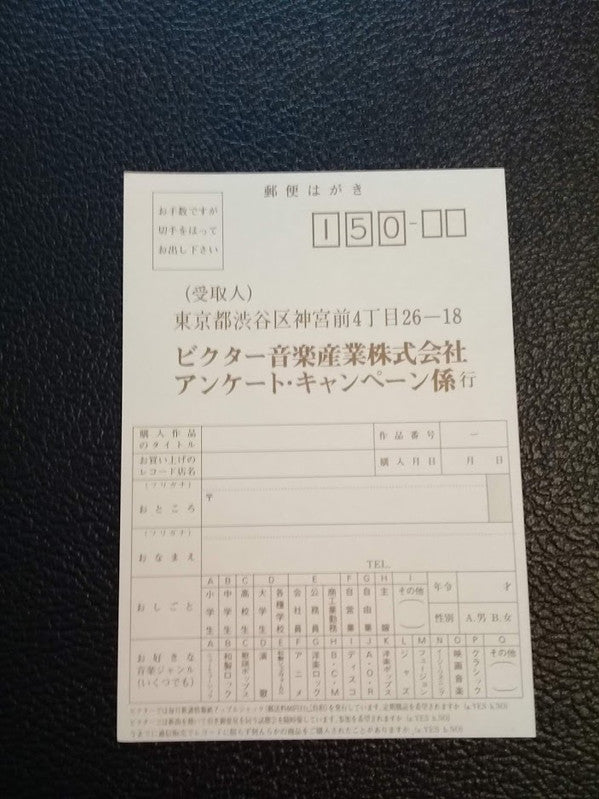 郵便はがき
お手数ですが
切手をはって
お出し下さい
150-
(受取人)
東京都渋谷区神宮前4丁目26-18
ビクター音楽産業株式会社
アンケート・キャンペーン係行
購入作品
のタイトル
作品番号
ー
お買い上げの
レコード店名
購入月日
月 日
(フリガナ)
おところ
〒
(フリガナ)
おなまえ
TEL.
おしごと
A 小学生
B 中学生
C 高校生
D 大学生 各種学校
E 会社員 公務員 商工業勤務
F 自営業
G 自由業
H 主婦
I その他
年令 才
性別 A.男 B.女
お好きな
音楽ジャンル
(いくつでも)
B 和製ロック
D 演歌
F アニメ
G 洋楽ロック
H B・C・M
I ディスコ
J A・O・R
K 洋楽ポップス
L ジャズ
M フュージョン
O 映画音楽
P クラシック
Q その他